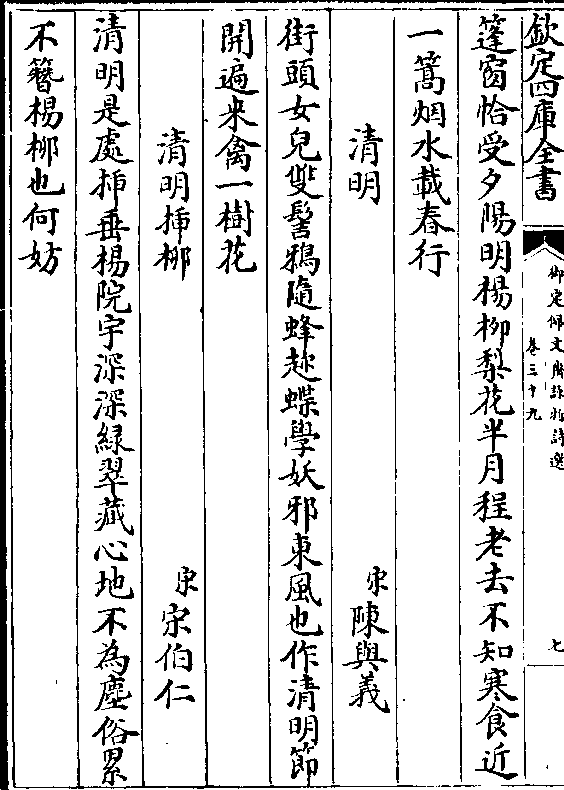 欽定四庫全書
御定佩文齋詠物詩選
卷三十九
七
篷窗恰受夕陽明楊柳梨花半月程老去不知寒食近
一篙烟水載春行
清明
宋陳與義
街頭女兒雙髻鴉隨蜂趂蝶學妖邪東風也作清明節
開遍来禽一樹花
清明揷桺
宋宋伯仁
清明是處揷垂楊院宇深深緑翠藏心地不為塵俗累
不簪楊桺也何妨